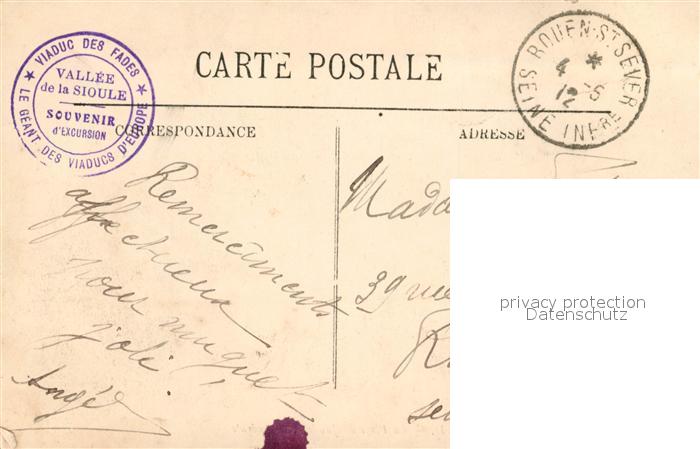 VIADUC DES FADES
VALLÉE
de la SIOULE
SOUVENIR
d'EXCURSION
LE GÉANT DES VIADUCS D'EUROPE
CARTE POSTALE
ROUEN-ST SEVER
*
4 -5
12
SEINE INFRE
CORRESPONDANCE
ADRESSE
Remerciements
affectueux
pour muguet
joli!
Angèle
Mada
39 rue
R
privacy protection
Datenschutz